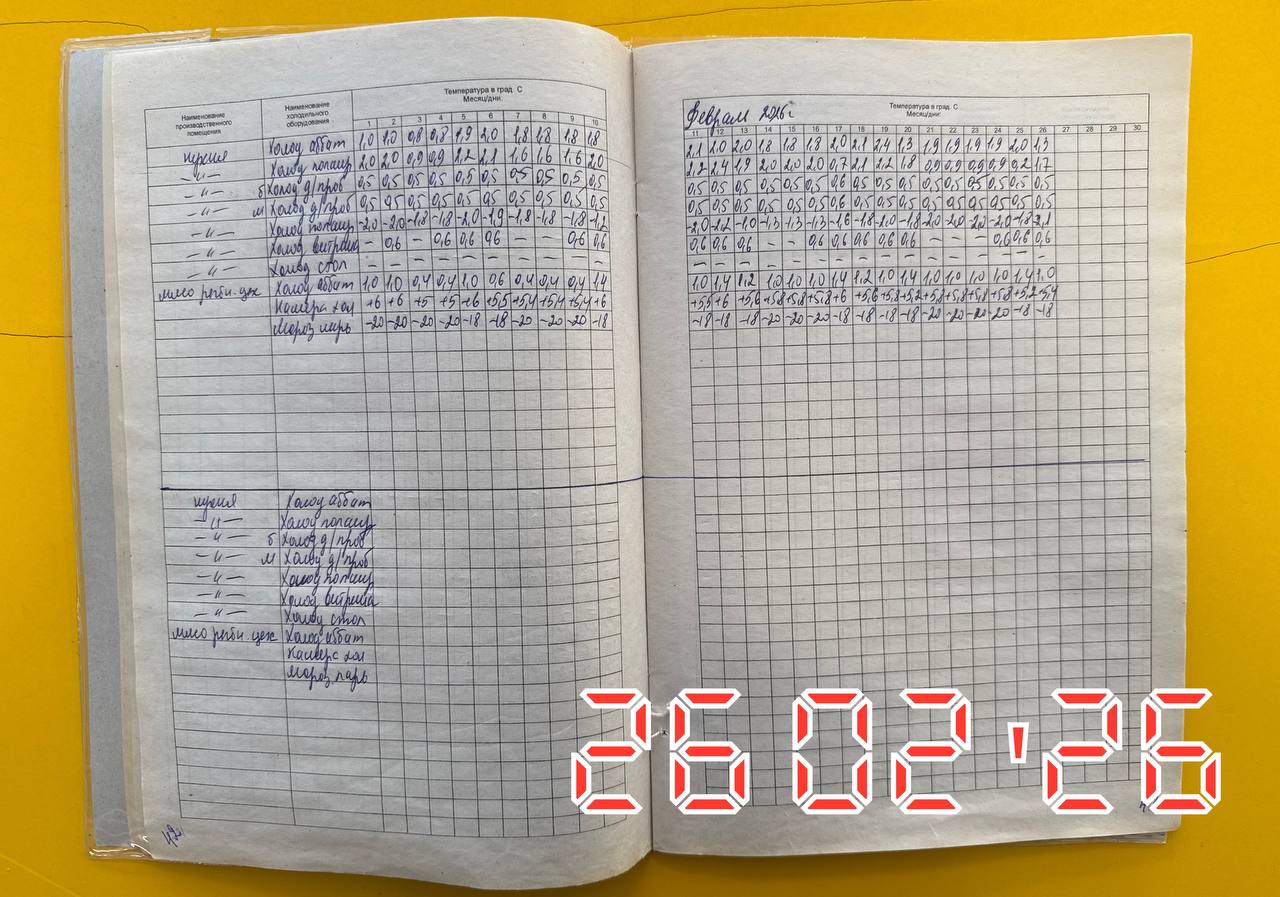 Наименование производственного помещения
Наименование холодильного оборудования
Температура в град. С
Месяц/дни:
1 2 3 4 5 6 7 8 9 10
кухня Холод аббат 1,0 1,0 0,8 0,8 1,9 2,0 1,8 1,8 1,8 1,8
–"– Холод 2,0 2,0 0,9 0,9 2,2 2,1 1,6 1,6 1,6 2,0
–"– б Холод д/проб 0,5 0,5 0,5 0,5 0,5 0,5 0,5 0,5 0,5 0,5
–"– м Холод д/проб 0,5 0,5 0,5 0,5 0,5 0,5 0,5 0,5 0,5 0,5
–"– Холод -2,0 -2,0 -1,8 -1,8 -2,0 -1,9 -1,8 -1,8 -1,8 -1,2
–"– Холод витрина – 0,6 – 0,6 0,6 0,6 – – 0,6 0,6
–"– Холод стол – – – – – – – – – –
мясо рыбн. цех Холод аббат 1,0 1,0 0,4 0,4 1,0 0,6 0,4 0,4 0,4 1,4
Камера хол +6 +6 +5 +5 +6 +5,5 +5,4 +5,4 +5,4 +6
Мороз ларь -20 -20 -20 -20 -18 -18 -20 -20 -20 -18
кухня Холод аббат
–"– Холод
–"– б Холод д/проб
–"– м Холод д/проб
–"– Холод
–"– Холод витрина
–"– Холод стол
мясо рыбн. цех Холод аббат
Камера хол
Мороз. ларь
42
Февраль 2026г
Температура в град. С
Месяц/дни:
11 12 13 14 15 16 17 18 19 20 21 22 23 24 25 26 27 28 29 30
2,1 2,0 2,0 1,8 1,8 1,8 2,0 2,1 2,4 1,3 1,9 1,9 1,9 1,9 2,0 1,3
2,2 2,4 1,9 2,0 2,0 2,0 0,7 2,1 2,2 1,8 0,9 0,9 0,9 0,9 0,2 1,7
0,5 0,5 0,5 0,5 0,5 0,5 0,6 0,5 0,5 0,5 0,5 0,5 0,5 0,5 0,5 0,5
0,5 0,5 0,5 0,5 0,5 0,5 0,6 0,5 0,5 0,5 0,5 0,5 0,5 0,5 0,5 0,5
-2,0 -2,2 -1,0 -1,3 -1,3 -1,3 -1,6 -1,8 -2,0 -1,8 -2,0 -2,0 -2,0 -2,0 -1,8
0,6 0,6 0,6 – – 0,6 0,6 0,6 0,6 0,6 – – – 0,6 0,6 0,6
– – – – – – – – – – – – – – – –
1,0 1,4 1,2 1,0 1,0 1,0 1,4 1,2 1,0 1,4 1,0 1,0 1,0 1,0 1,4 1,0
+5,5 +6 +5,6 +5,8 +5,8 +5,8 +6 +5,6 +5,8 +5,2 +5,8 +5,8 +5,8 +5,8 +5,2 +5,4
-18 -18 -18 -20 -20 -20 -18 -18 -18 -18 -20 -20 -20 -20 -18 -18
26 02 '26